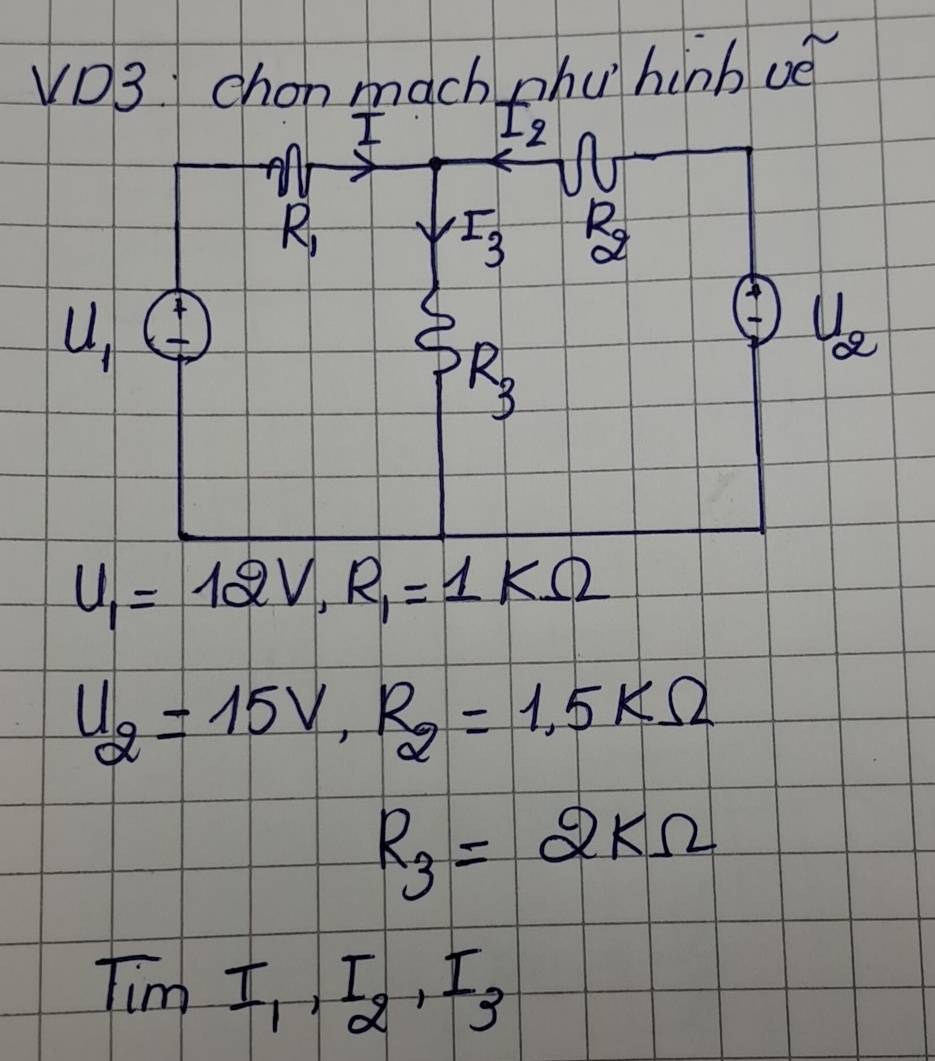 VD3: chọn mạch như hình vẽ
I I₂
R₁ I₃ R₂
+ +
U₁ - - U₂
R₃
U₁ = 12V, R₁ = 1 KΩ
U₂ = 15V, R₂ = 1,5 KΩ
R₃ = 2KΩ
Tim I₁, I₂, I₃